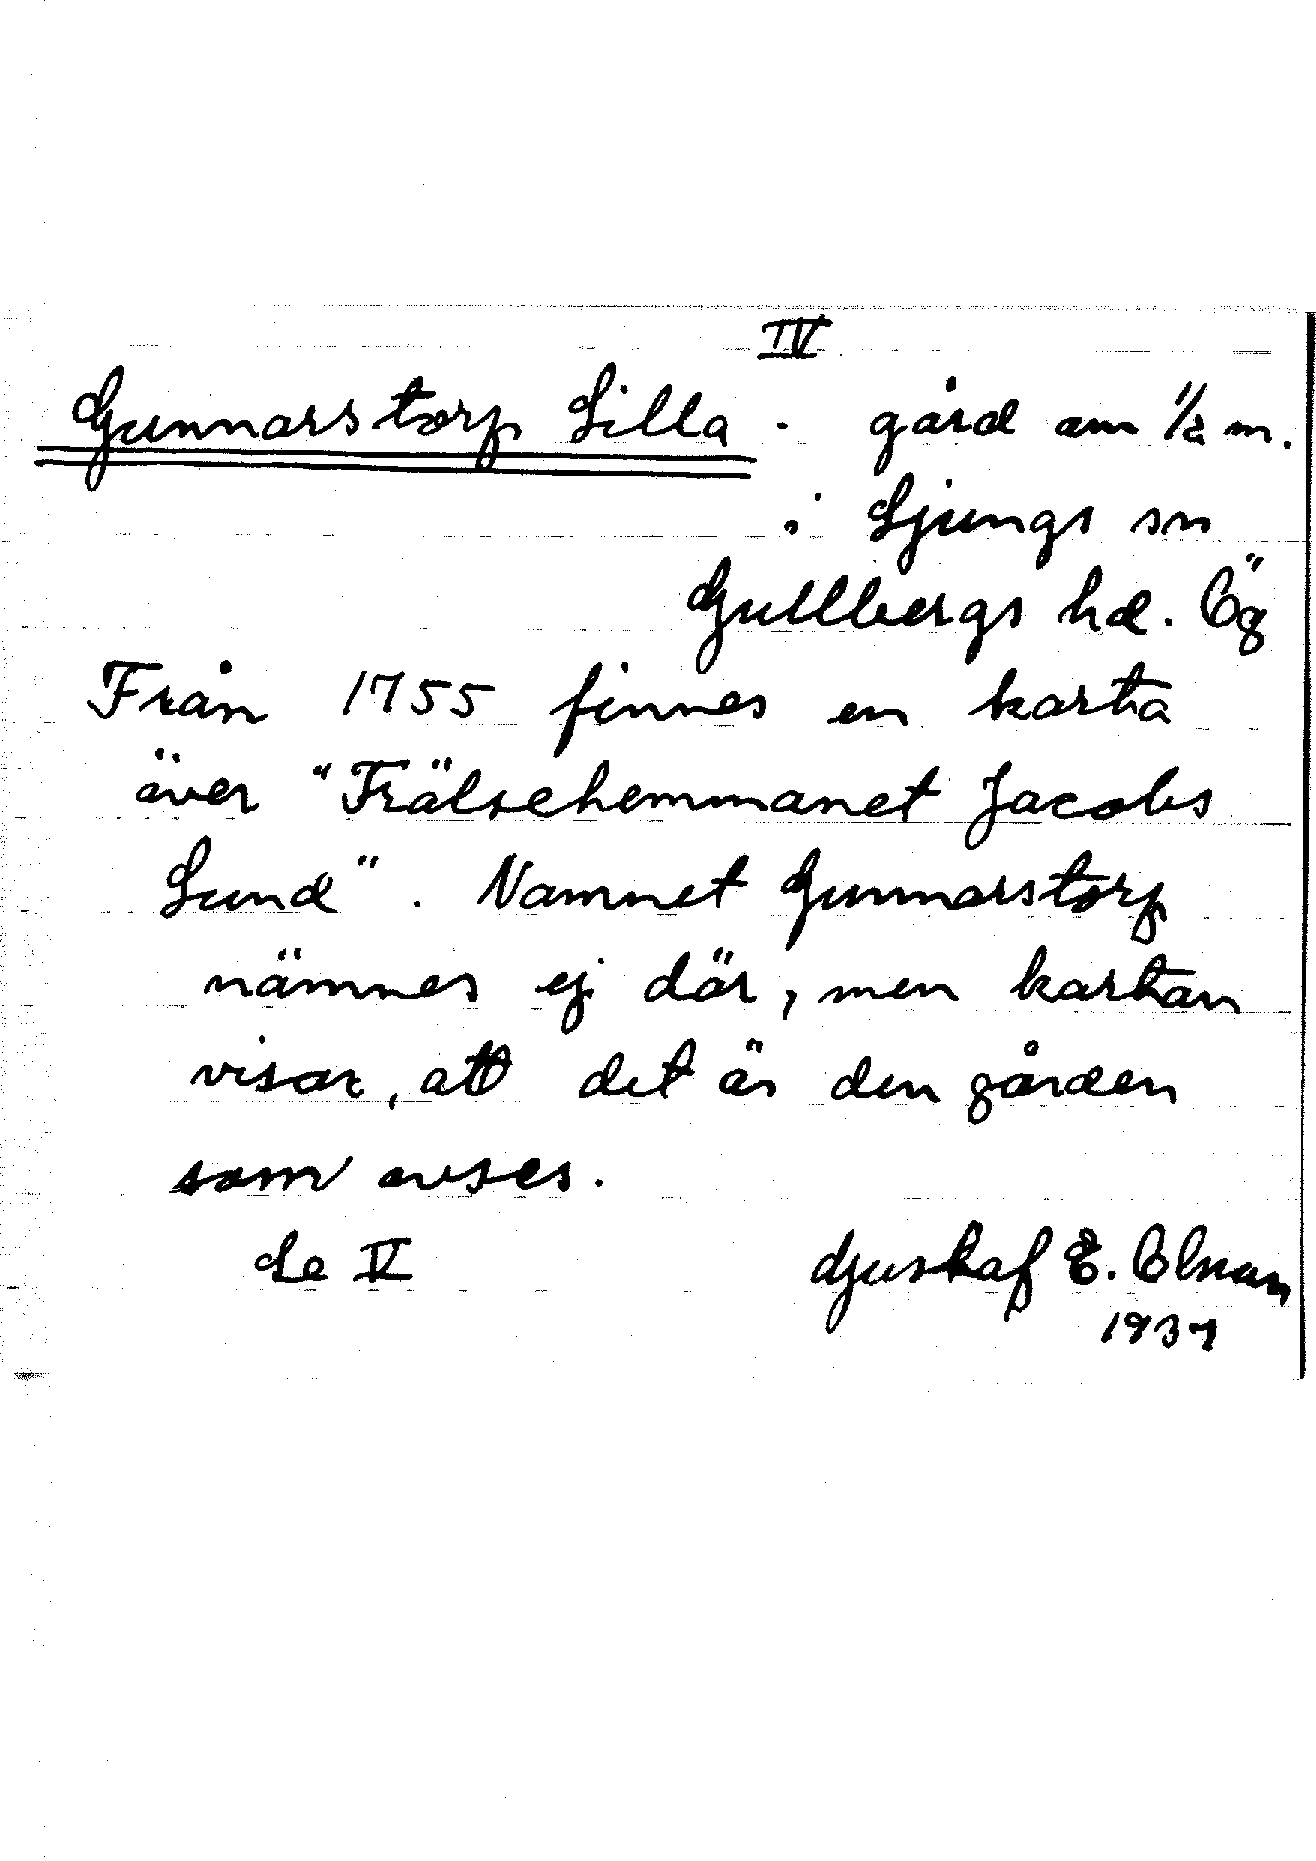 IV
Gunnarstorp Lilla. gård om 1/2 m.
i Ljungs sn
Gullbergs hd. Ög
Från 1755 finnes en karta
över "Frälsehemmanet Jacobs
Lund". Namnet Gunnarstorp
nämnes ej där, men kartan
visar, att det är den gården
som avses.
Se V
Gustaf E. Olson
1937